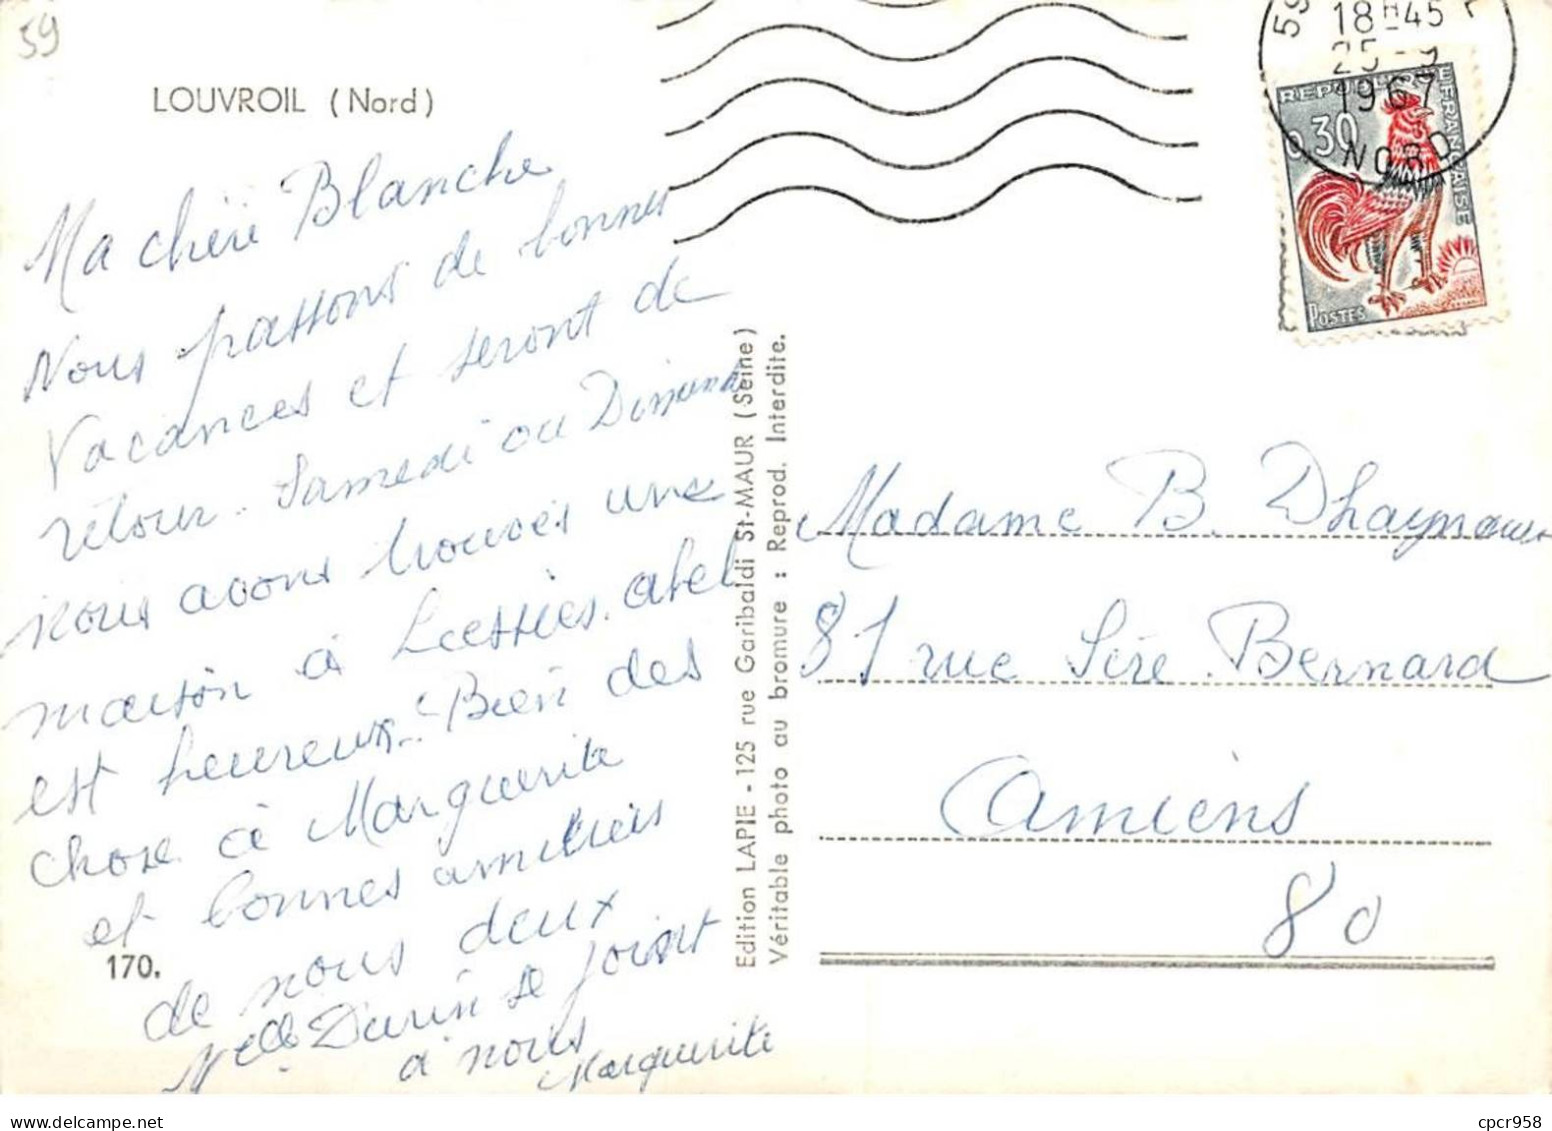 59
LOUVROIL (Nord)
Ma chère Blanche
Nous passons de bonnes
Vacances et seront de
retour Samedi ou Dimanche
nous avons trouvés une
maison à Liessies. abel
est heureux. Bien des
chose à Marguerite
et bonnes amitiés
de nous deux
Melle Durin se joint
à nous
Marguerite
170.
Edition LAPIE - 125 rue Garibaldi St-MAUR (Seine)
Véritable photo au bromure : Reprod. Interdite.
59
18H45
25-9
1967
NORD
REPUBLIQUE FRANÇAISE
0,30
POSTES
Madame B.
81 rue Sère Bernard
Amiens
80
cpcr958